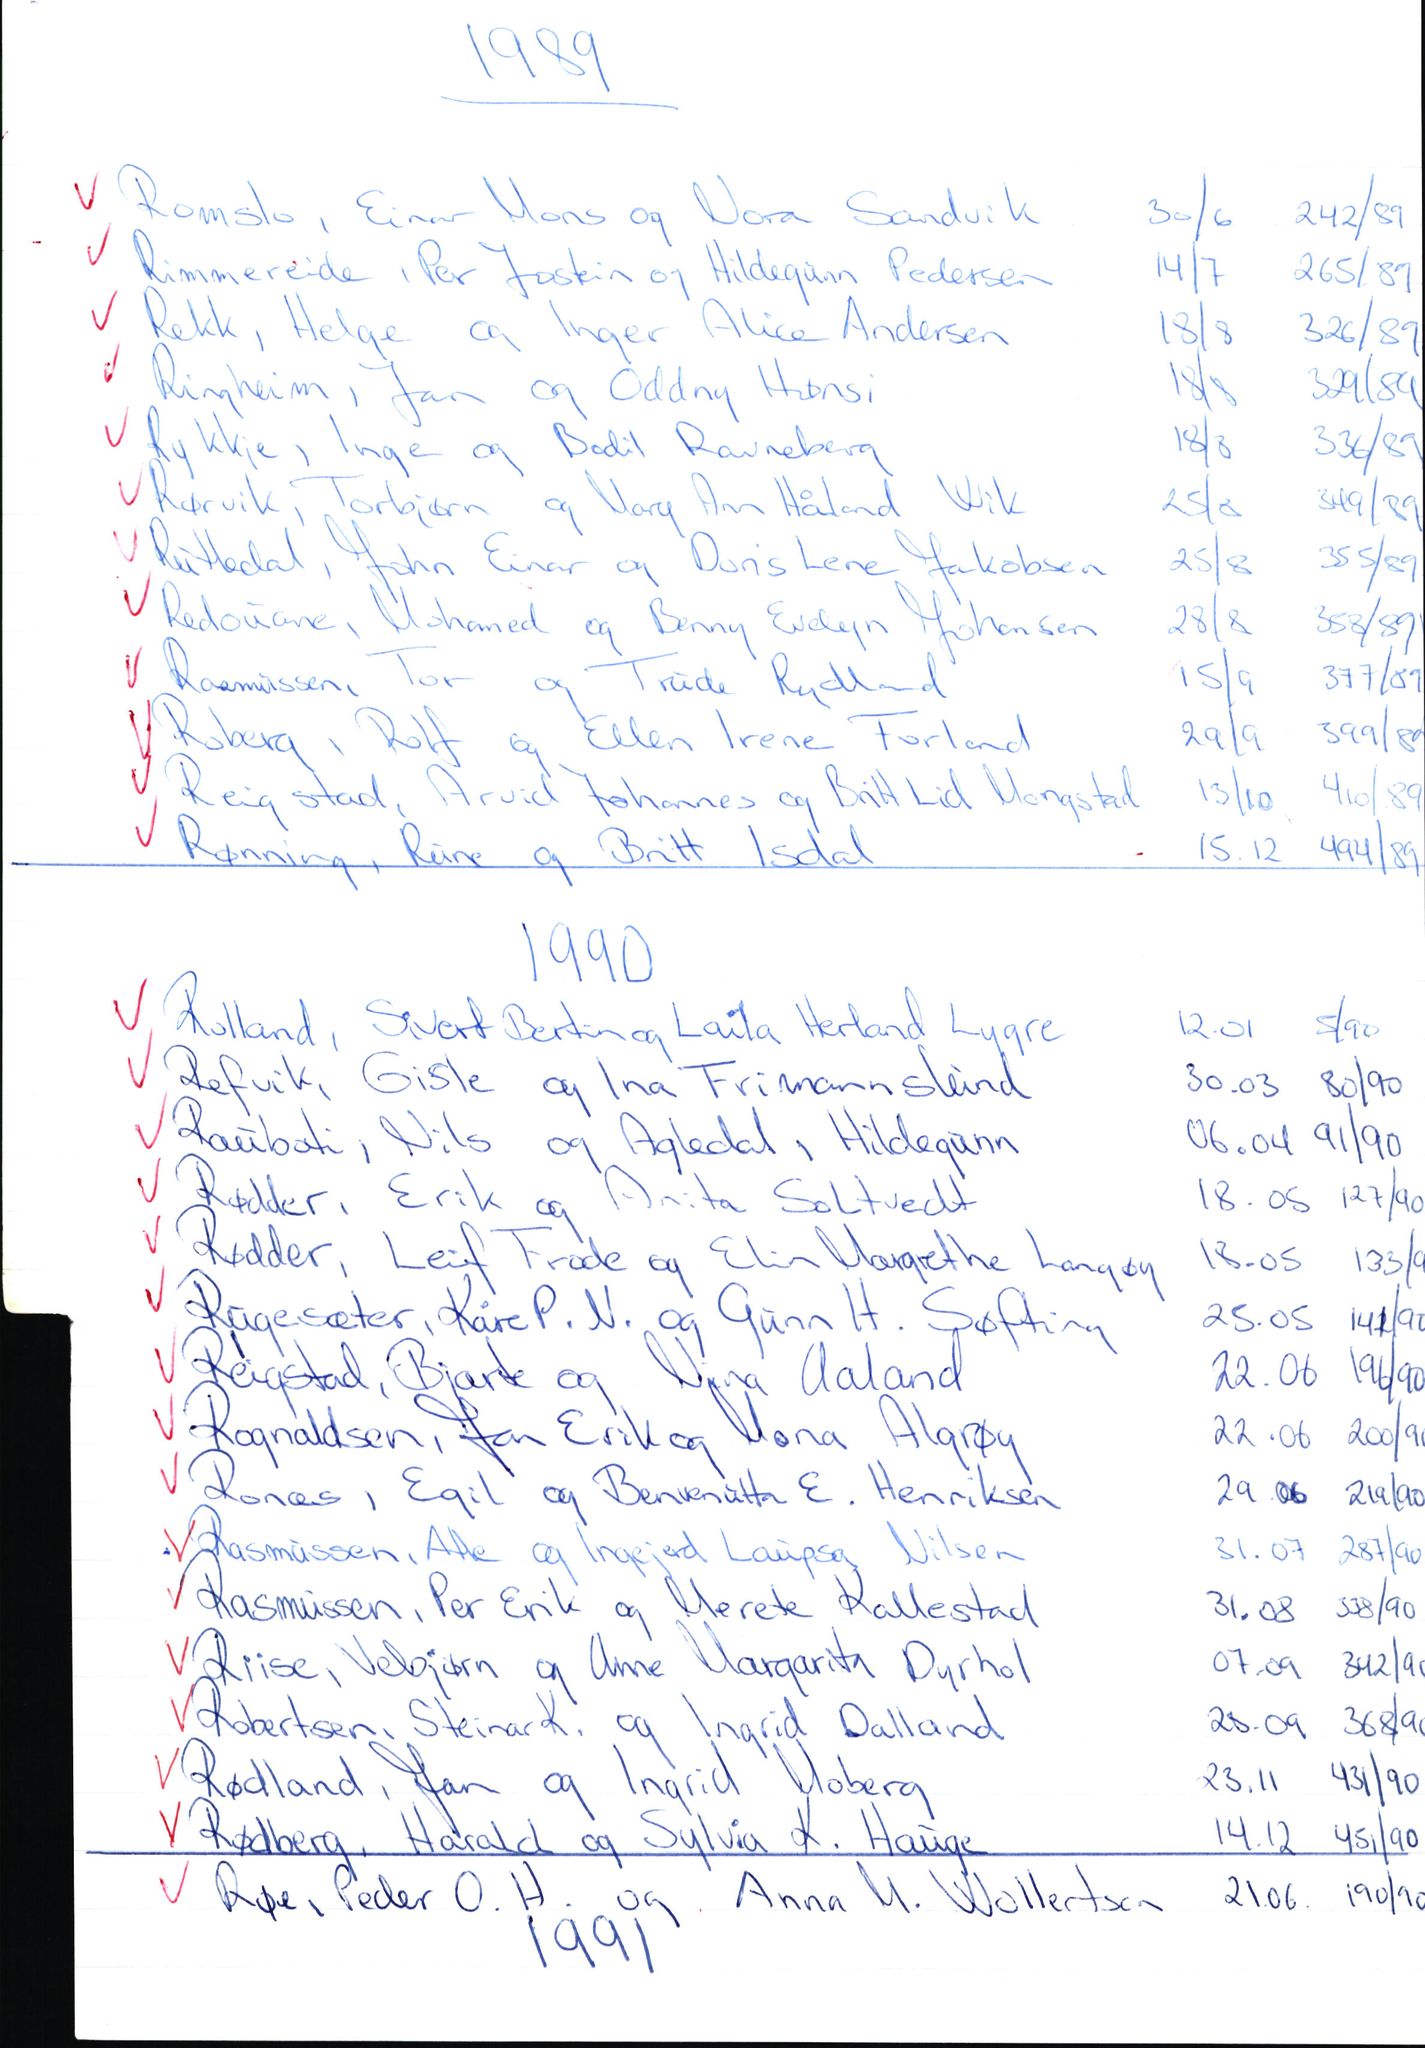 1989
Romslo, Einar Mons og Nora Sandvik 30/6 242/89
Rimmereide, Per Jostein og Hildegunn Pedersen 14/7 265/89
Rekk, Helge og Inger Alice Andersen 18/8 326/89
Ringheim, Jan og Oddny Hønsi 18/8 329/89
Rykkje, Inge og Bodil Ravneberg 18/8 336/89
Rørvik, Torbjørn og Mary Ann Håland Wik 25/8 349/89
Rutledal, John Einar og Doris Lene Jakobsen 25/8 355/89
Redouane, Mohamed og Benny Evelyn Johansen 28/8 358/89
Rasmussen, Tor og Trude Rydland 15/9 377/89
Roberg, Rolf og Ellen Irene Forland 29/9 399/89
Reigstad, Arvid Johannes og Britt Lid Mongstad 13/10 410/89
Rønning, Rune og Britt Isdal 15.12 494/89
1990
Rolland, Sivert Bertin og Laila Herland Lygre 12.01 5/90
Refvik, Gisle og Ina Frimannslund 30.03 80/90
Rauboti, Nils og Agledal, Hildegunn 06.04 91/90
Rødder, Erik og Anita Soltvedt 18.05 127/90
Rødder, Leif Frode og Elin Margrethe Langøy 18.05 133/9
Rugesæter, Kåre P. N. og Gunn H. Søfting 25.05 /90
Reigstad, Bjarte og Nina Aaland 22.06 196/90
Rognaldsen, Jan Erik og Mona Algrøy 22.06 200/9
Ronæs, Egil og Benvenutta E. Henriksen 29.06 219/90
Rasmussen, Atle og Ingejerd Laupsa Nilsen 31.07 287/90
Rasmussen, Per Erik og Merete Kallestad 31.08 338/90
Riise, Vebjørn og Anne Margarita Dyrhol 07.09 342/9
Robertsen, Steinar K. og Ingrid Dalland 28.09 368/9
Rødland, Jan og Ingrid Moberg 23.11 431/90
Rødberg, Harald og Sylvia K. Hauge 14.12 451/90
Røe, Peder O. H. og Anna M. Wollertsen 21.06. 190/90
1991